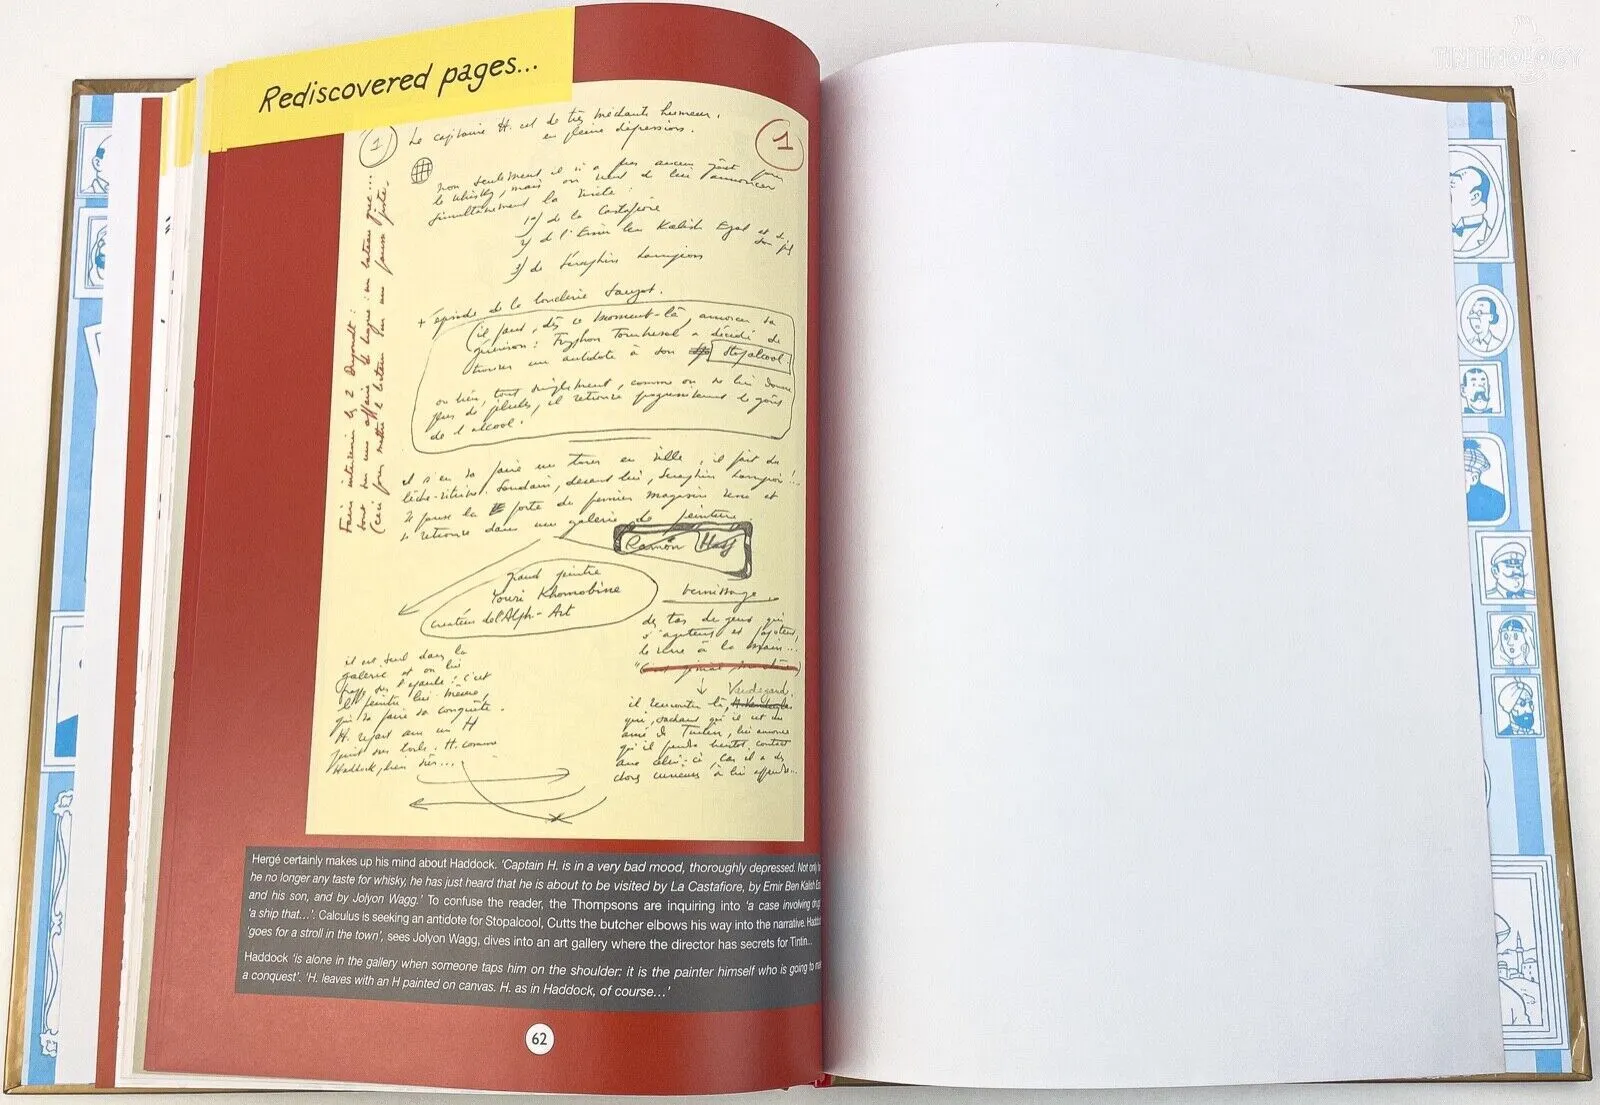 TINTINOLOGY
Rediscovered pages...
1
1
Le capitaine H. est de très méchante humeur,
en pleine dépression.
non seulement il n'a plus aucun goût pour
le whisky, mais on vient de lui annoncer
simultanément la visite :
1°) de la Castafiore
2) de l'Émir Ben Kalish Ezab et de son fils
3) de Séraphin Lampion
+ épisode de la boucherie Sanzot.
(il faut, dès ce moment-là, amorcer sa
guérison : Tryphon Tournesol a décidé de
trouver un antidote à son Stopalcool.
ou bien, tout simplement, comme on ne lui donne
plus de pilules, il retrouve progressivement le goût
de l'alcool.
il s'en va faire un tour en ville, il fait du
lèche-vitrines. Soudain, devant lui, Séraphin Lampion !!
Il pousse la porte du premier magasin venu et
se retrouve dans une galerie de peinture
Ramón Hasj
grand peintre
Youri Khomobine
créateur de l'Alph-Art
vernissage
des tas de gens qui
s'agitent et papotent,
le verre à la main...
il est seul dans la
galerie et on lui
tape sur l'épaule : c'est
le peintre lui-même,
qui va faire sa conquête.
H. repart avec un H
peint sur toile. H. comme
Haddock, bien sûr...
il rencontre là,
qui, sachant qu'il est un
ami de Tintin, lui annonce
qu'il prendra bientôt contact
avec celui-ci, car il a des
choses curieuses à lui apprendre...
Faire intervenir les 2 Dupondt :
(ceci pour mettre le lecteur sur une fausse piste.
Hergé certainly makes up his mind about Haddock. 'Captain H. is in a very bad mood, thoroughly depressed. Not only
he no longer any taste for whisky, he has just heard that he is about to be visited by La Castafiore, by Emir Ben Kalish
and his son, and by Jolyon Wagg.' To confuse the reader, the Thompsons are inquiring into 'a case involving
'a ship that...'. Calculus is seeking an antidote for Stopalcool, Cutts the butcher elbows his way into the narrative.
'goes for a stroll in the town', sees Jolyon Wagg, dives into an art gallery where the director has secrets for Tintin...
Haddock 'is alone in the gallery when someone taps him on the shoulder: it is the painter himself who is going to
a conquest'. 'H. leaves with an H painted on canvas. H. as in Haddock, of course...'
62